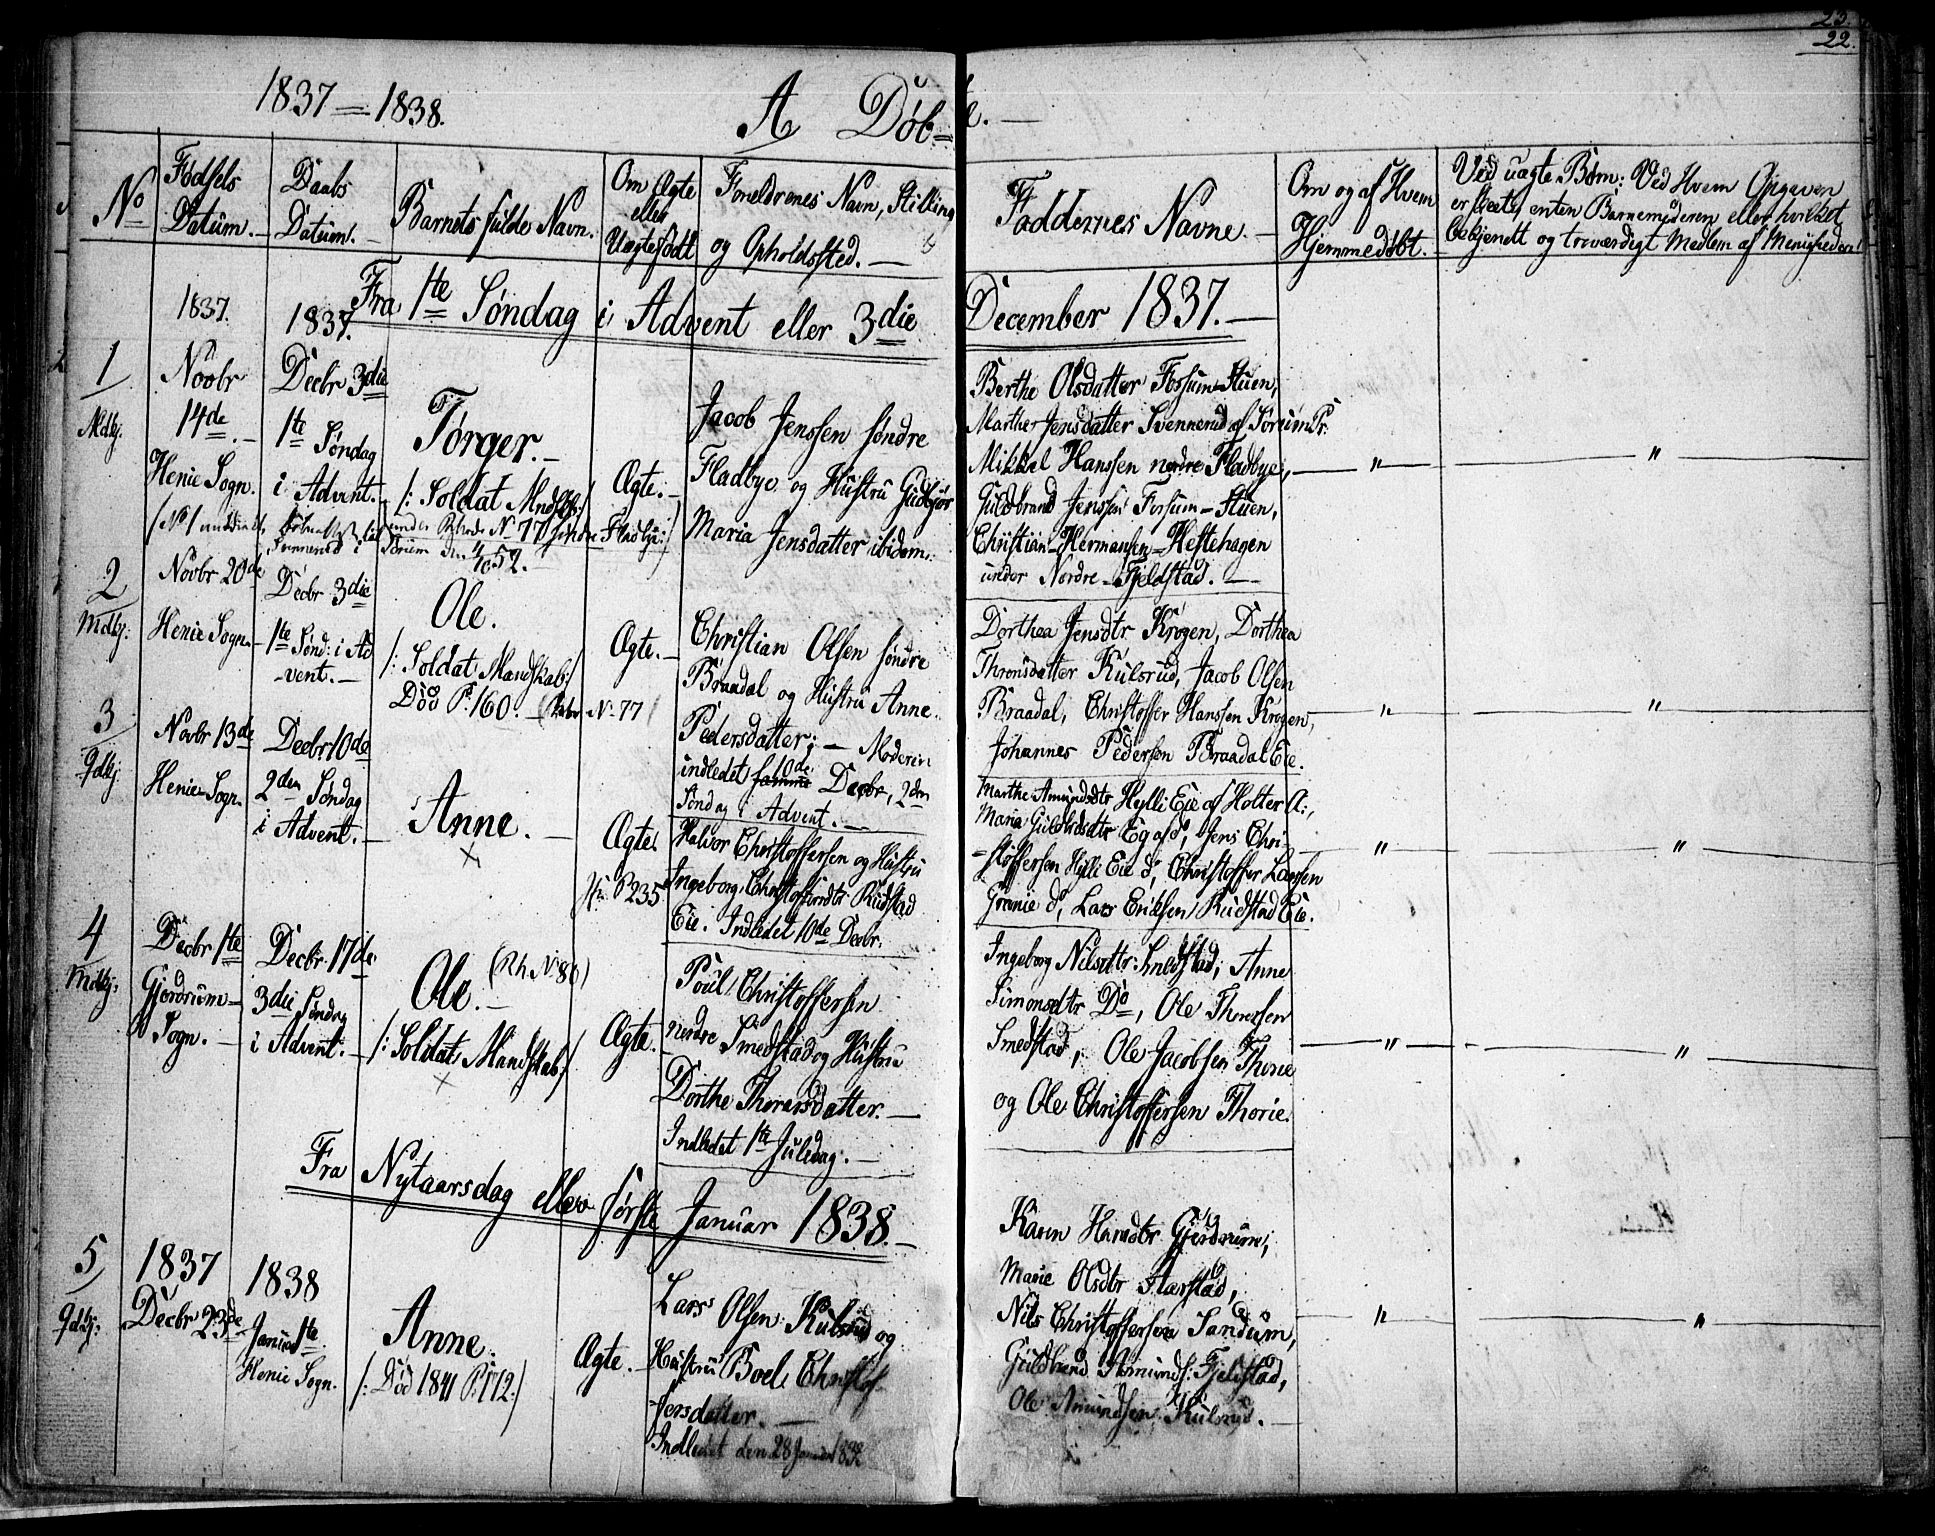 23.
22.
1837 = 1838.
A Döb=e. —
No
Fødsels Datum. —
Daabs Datum. —
Barnets fulde Navn.
Om Ægte eller Uægtefødt
Foreldrenes Navn, Stilling og Opholdssted. —
Faddernes Navne. —
Om og af Hvem Hjemmedøbt. —
Ved uægte Børn: Ved Hvem Opgaven
er skeet, enten Barnemoderen eller hvilket
bekjendt og troværdigt Medlem af Menigheden
Fra 1te Søndag i Advent eller 3die December 1837. —
1837.
1837.
1
Mdkj.
Novbr
14de. —
Henie Sogn.
Decbr 3die
1te Søndag
i Advent. —
Tørger. —
/: Soldat Mndsk:/
under Rhode No 77 søndre Fladbye:/
Ægte. —
Jacob Jenssen søndre
Fladbye og Hustru Gudbjør
Maria Jensdatter ibidem.
Berthe Olsdatter Fossum-Stuen,
Marthe Jensdatter Svennerud af Sørum Pr:
Mikkel Hanssen nordre Fladbye,
Guldbrand Jenssen Fossum-Stuen,
Christian Hermansen Hestehagen
under Nordre-Fjeldstad. —
— " —
— " —
2
Mdkj:
Novbr 20de
Henie Sogn. —
Decbr 3die
1te Sønd: i Ad
-vent. —
Ole.
/: Soldat Mandskab:/
Død P. 160. — No 77
Ægte. —
Christian Olsen søndre
Braadal og Hustru Anne
Pedersdatter; — Moderen
indledet 10de Decbr, 2den
Søndag i Advent. —
Dorthea Jensdtr Krogen, Dorthea
Thronsdatter Kulsrud, Jacob Olsen
Braadal, Christoffer Hanssen Krogen,
Johannes Pedersen Braadal Eie.
— " —
— " —
3
Qdkj
Novbr 13de
Henie Sogn.
Decbr: 10de
2den Søndag
i Advent. —
Anne. —
Ægte.
P 235
Halvor Christoffersen og Hustru
Ingeborg Christoffersdtr Rudstad
Eie. Indledet 10de Decbr.
Marthe Amundsdtr Hylli Eie af Holter A:,
Maria Guldbrdsdtr Eg af do, Jens Chri-
=stoffersen Hylli Eie do, Christoffer Larsen
Grønie do, Lars Eriksen Rudstad Eie.
— " —
— " —
4
Mdkj:
Decbr 1te
Gjerdrum-
Sogn. —
Decbr 17de
3die Søndag
i Advent. —
Ole. —
(Rh. No 80)
/: Soldat Mandskab:/
Ægte.
Poul Christoffersen
nordre Smedstad og Hustru
Dorthe Thorersdatter. —
Indledet 1te Juledag. —
Ingeborg Nilsdtr: Smedstad, Anne
Simonsdtr Do, Ole Thoresen
Smedstad, Ole Jacobsen Thorie
og Ole Christoffersen Thorie.
— " —
— " —
Fra Nytaarsdag eller første Januar 1838. —
5
Qdkj:
1837
Decbr 23de
1838
Januar 1te
Henie Sogn.
Anne.
/: Død 1841 P: 172:/
Ægte. —
Lars Olsen Kulsrud og
Hustru Boel Christof-
fersdatter. —
Indledet den 28 Januar 1838
Karen Hansdtr Gjerdrum,
Marie Olsdtr Starstad,
Nils Christoffersen Sandum,
Guldbrand Amunds: Fjeldstad,
Ole Amundsen Kulsrud. —
— " —
— " —